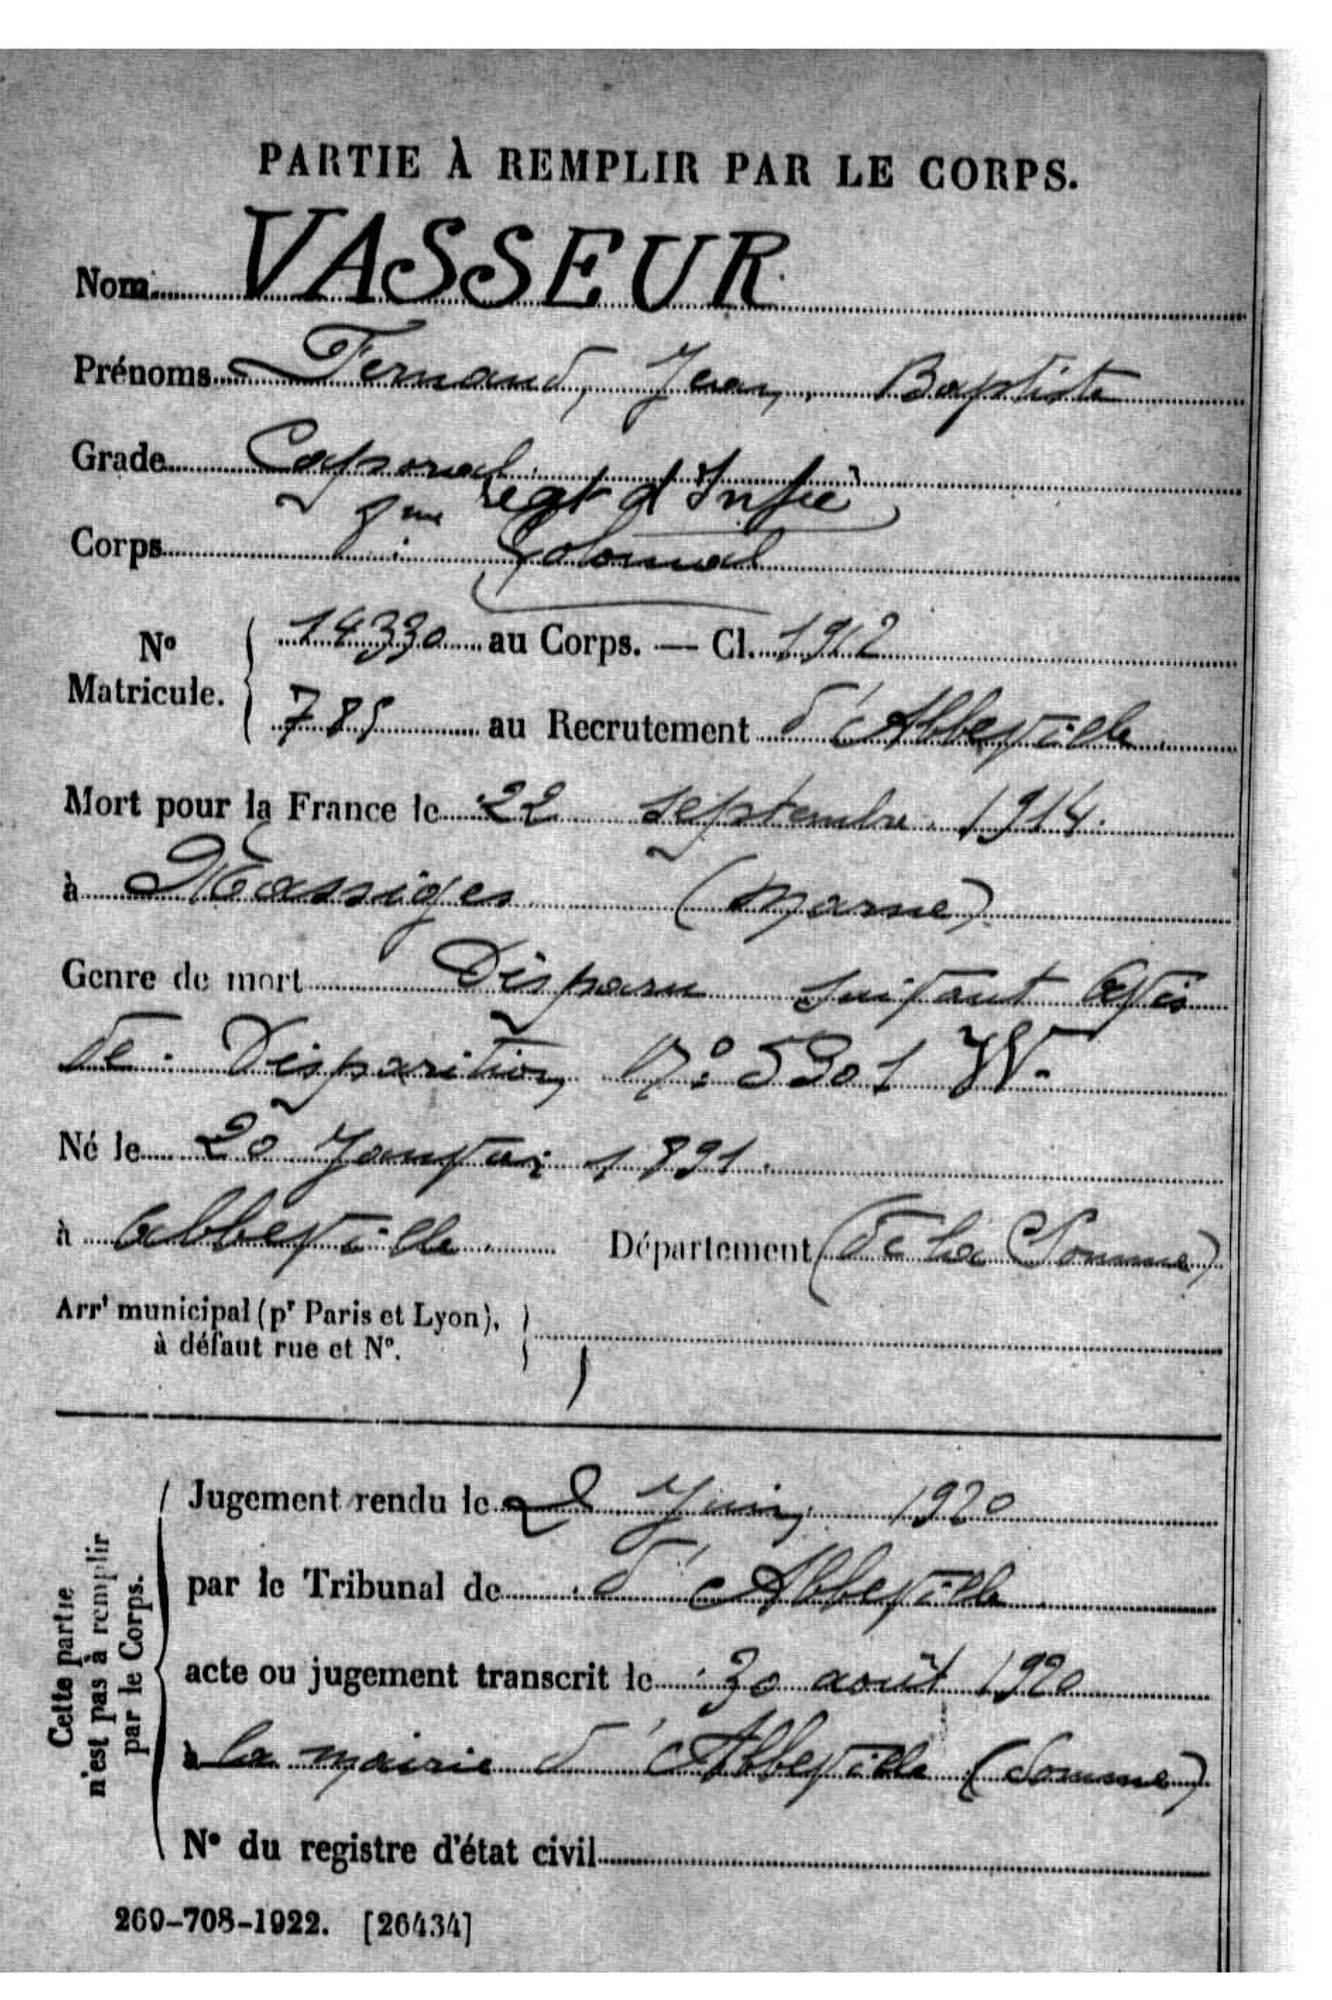 PARTIE À REMPLIR PAR LE CORPS.
Nom VASSEUR
Prénoms Fernand, Jean, Baptiste
Grade Caporal
Corps 8me Regt d'Infie
Colonial
No Matricule. 14330 au Corps. — Cl. 1912
785 au Recrutement d'Abbeville
Mort pour la France le 22 septembre 1914.
à Massiges (Marne)
Genre de mort Disparu suivant Avis
de Disparition No 5301 W.
Né le 20 Janvier 1891.
à Abbeville Département (de la Somme)
Arrt municipal (pr Paris et Lyon),
à défaut rue et No.
Cette partie
n'est pas à remplir
par le Corps.
Jugement rendu le 2 Juin 1920
par le Tribunal de d'Abbeville
acte ou jugement transcrit le 30 août 1920
à la mairie d'Abbeville (Somme)
No du registre d'état civil
269-708-1922. [26434]